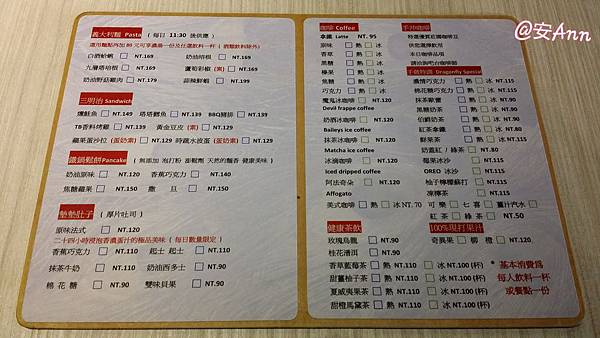 @安Ann
義大利麵 Pasta ( 每日 11:30 後供應 )
選用麵點再加 80 元可享濃湯一份及任選飲料一杯 ( 酒類飲料除外)
白酒蛤蜊 NT.169 奶油培根 NT.169
九層塔培根 NT.169 蘆筍彩椒 (素) NT.169
奶油野菇雞肉 NT.179 蒜辣鮮蝦 NT.199
三明治 Sandwich
燻鮭魚 NT.149 塔塔鱈魚 NT.139 BBQ豬排 NT.139
TB香料烤雞 NT.139 黃金豆皮 (素) NT.129
蘋果蛋沙拉 (蛋奶素) NT.129 時蔬水波蛋 (蛋奶素) NT.129
鐵鍋鬆餅Pancake ( 無添加 泡打粉 澎鬆劑 天然的麵香 健康美味 )
奶油原味 NT.120 香蕉巧克力 NT.140
焦糖蘋果 NT.150 撒 旦 NT.150
墊墊肚子 ( 厚片吐司 )
原味法式 NT.120
二十四小時浸泡香濃蛋汁的極品美味 ( 每日數量限定 )
香蕉巧克力 NT.110 起士 起士 NT.110
抹茶牛奶 NT.110 奶油西多士 NT.90
棉 花 糖 NT.90 雙味貝果 NT.90
咖啡 Coffee
拿鐵 Latte NT. 95
原味 熱 冰
香草 熱 冰
黑糖 熱 冰
榛果 熱 冰
焦糖 熱 冰
巧克力 熱 冰
魔鬼冰咖啡 NT.120
Devil frappe coffee
奶酒冰咖啡 NT.120
Baileys ice coffee
抹茶冰咖啡 NT.120
Matcha ice coffee
冰滴咖啡 NT.120
Iced dripped coffee
阿法奇朵 NT.120
Affogato
美式咖啡 熱 冰 NT.70
手沖咖啡
特選優質莊園咖啡豆
供您選擇飲用
本日咖啡商品
請洽詢吧台咖啡師
手做特調 Dragonfly Special
濃情巧克力 熱 冰 NT.115
棉花糖巧克力 熱 冰 NT.115
抹茶歐蕾 熱 冰 NT.90
黑糖奶茶 熱 冰 NT.90
伯爵奶茶 熱 冰 NT.90
紅茶拿鐵 熱 冰 NT.80
鮮果茶 熱 冰 NT.115
奶蓋紅 / 綠茶 NT.80
莓果冰沙 NT.115
OREO 冰沙 NT.115
柚子檸檬蘇打 NT.115
凍檸茶 NT.115
可 樂 七 喜 薑汁汽水
紅 茶 綠 茶 NT.50
健康茶飲
玫瑰烏龍 NT.90
桂花清洱 NT.90
香草藍莓茶 熱 NT.110 冰 NT.100 (杯)
甜薑柚子茶 熱 NT.110 冰 NT.100 (杯)
夏威夷果茶 熱 NT.110 冰 NT.100 (杯)
甜橙馬黛茶 熱 NT.110 冰 NT.100 (杯)
100%現打果汁
奇異果 柳 橙 NT.120
* 基本消費為
每人飲料一杯
或餐點一份